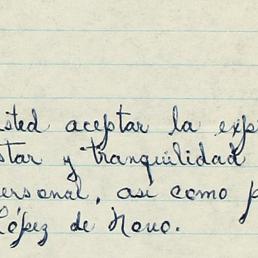 sted aceptar la exp
star y tranquilidad
ersonal, así como p
López de Novo.